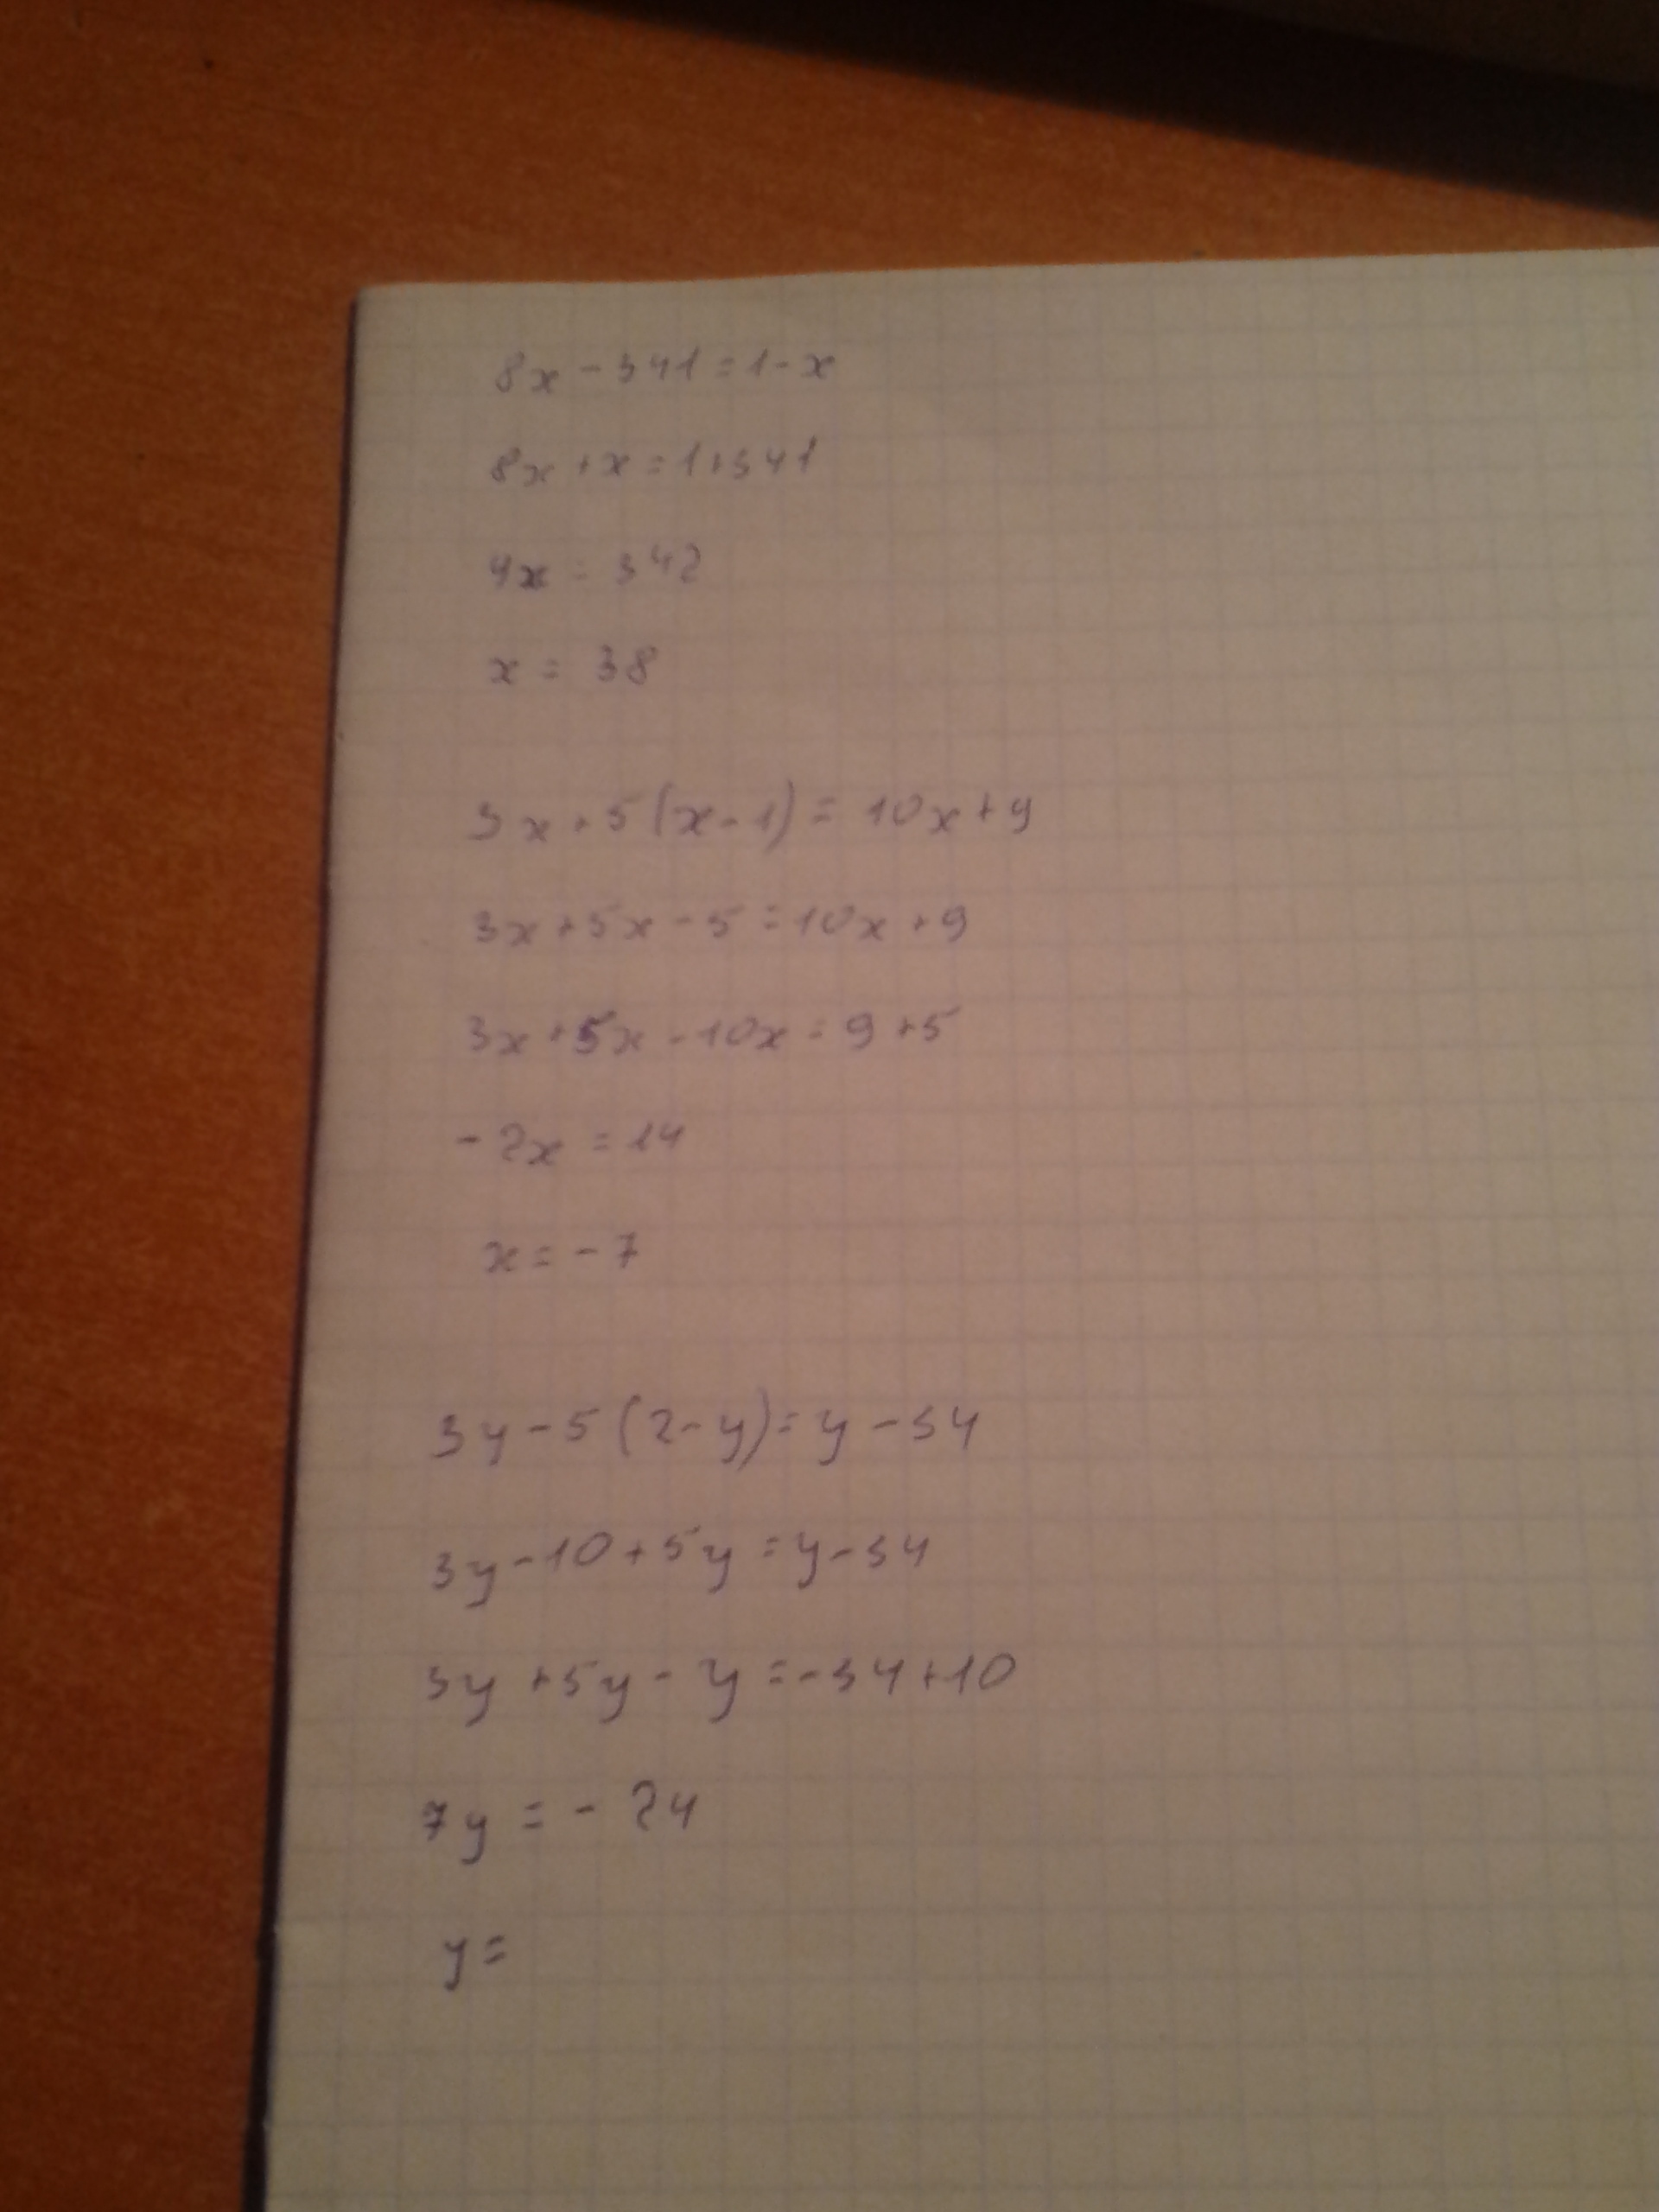 8x-341=1-x
8x+x=1+341
9x=342
x=38
3x+5(x-1)=10x+9
3x+5x-5=10x+9
3x+5x-10x=9+5
-2x=14
x=-7
3y-5(2-y)=y-34
3y-10+5y=y-34
3y+5y-y=-34+10
7y=-24
y=